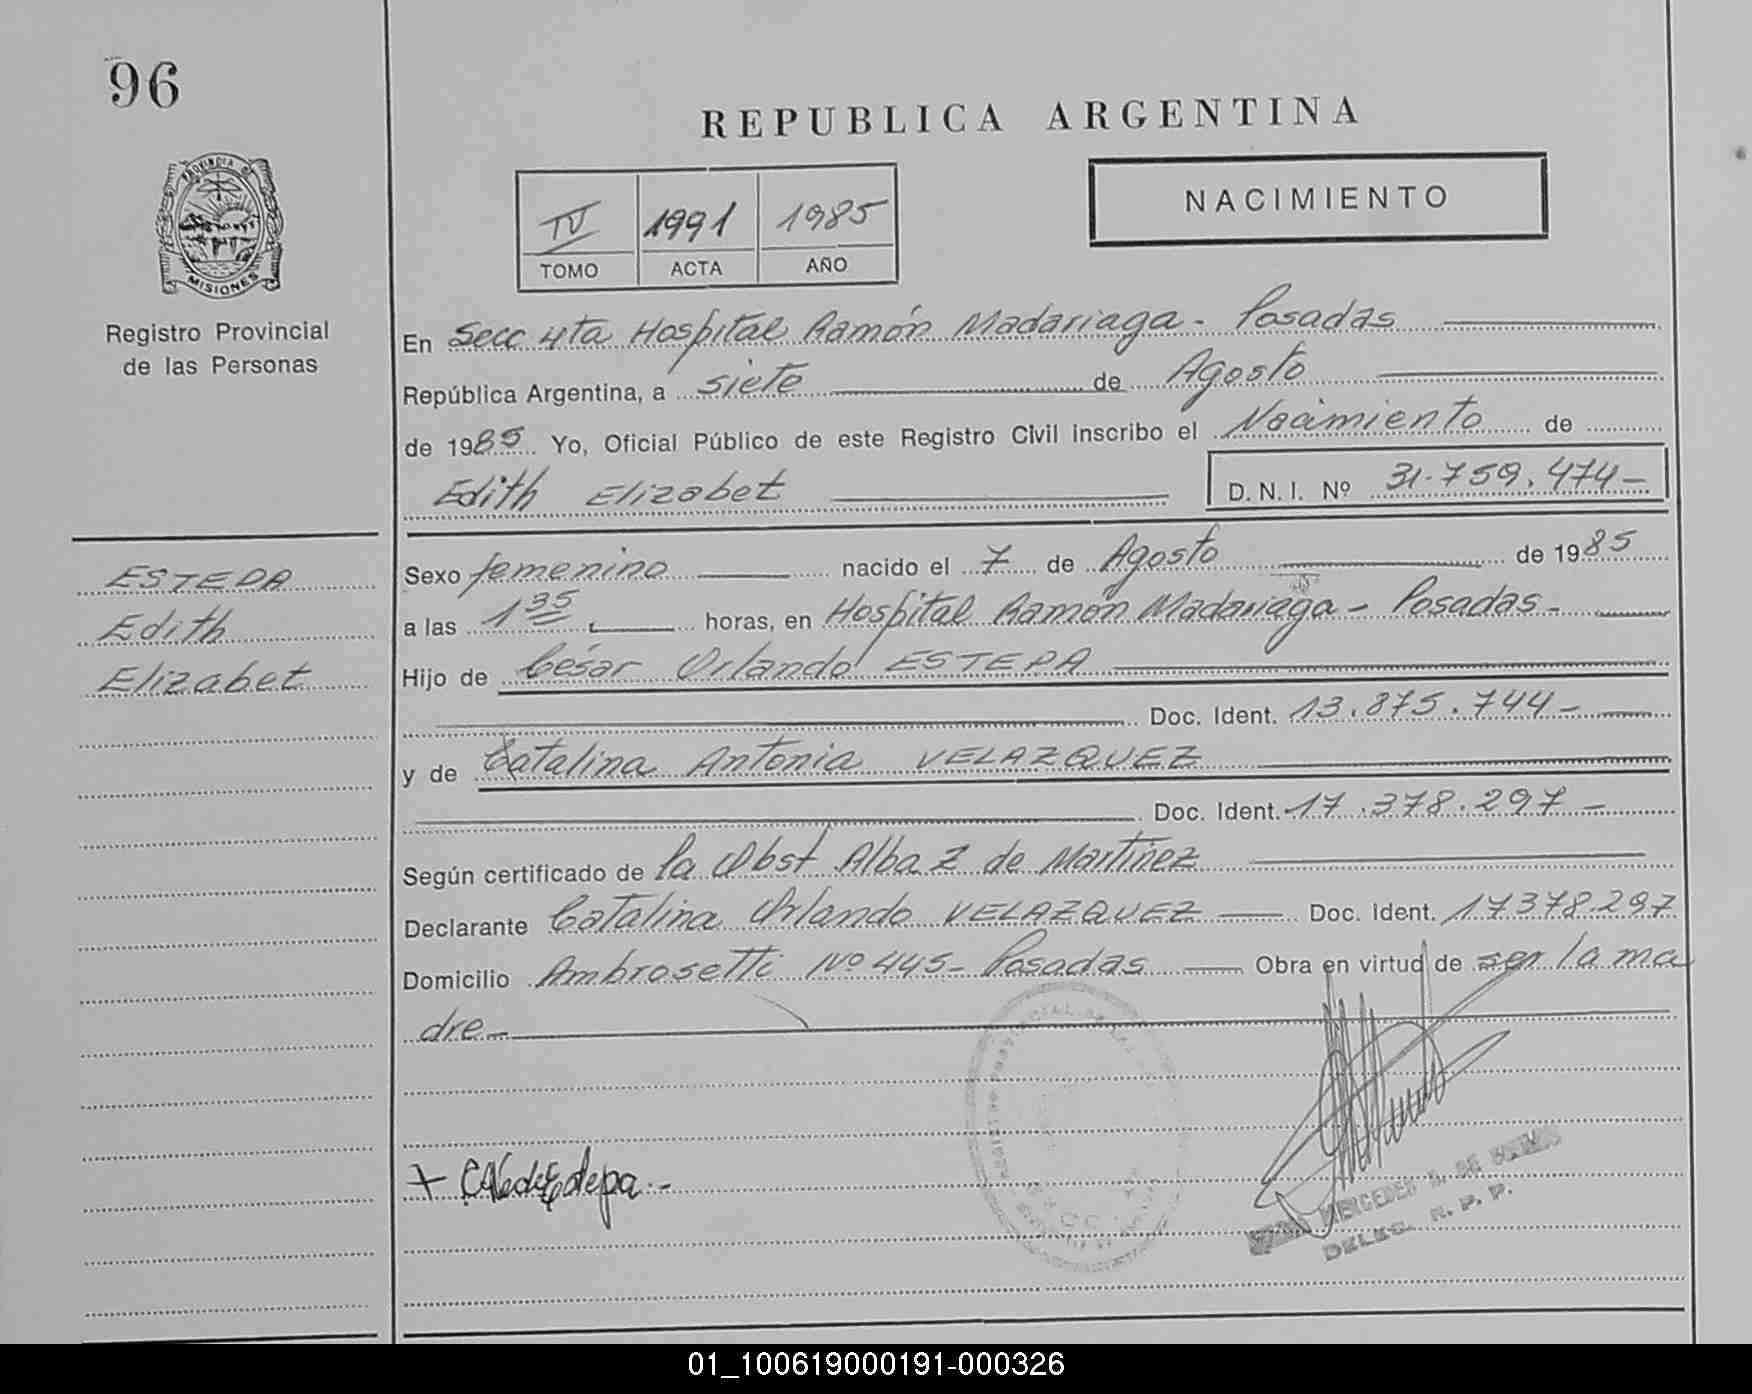 96
REPUBLICA ARGENTINA
PROVINCIA D
MISIONES
Registro Provincial
de las Personas
IV 1991 1985
TOMO ACTA AÑO
NACIMIENTO
En Secc 4ta Hospital Ramón Madariaga - Posadas
República Argentina, a siete de Agosto
de 1985 Yo, Oficial Público de este Registro Civil inscribo el Nacimiento de
Edith Elizabet D. N. I. Nº 31.759.474-
ESTEPA
Edith
Elizabet
Sexo femenino nacido el 7 de Agosto de 1985
a las 1 35 horas, en Hospital Ramón Madariaga - Posadas -
Hijo de César Orlando ESTEPA
Doc. Ident. 13.875.744 -
y de Catalina Antonia VELAZQUEZ
Doc. Ident. 17.378.297 -
Según certificado de la Obst Alba Z de Martinez
Declarante Catalina Orlando VELAZQUEZ Doc. Ident. 17378.297
Domicilio Ambrosetti Nº 445 - Posadas Obra en virtud de ser la ma
dre -
MERCEDES
DELEG. R. P. P.
01_100619000191-000326